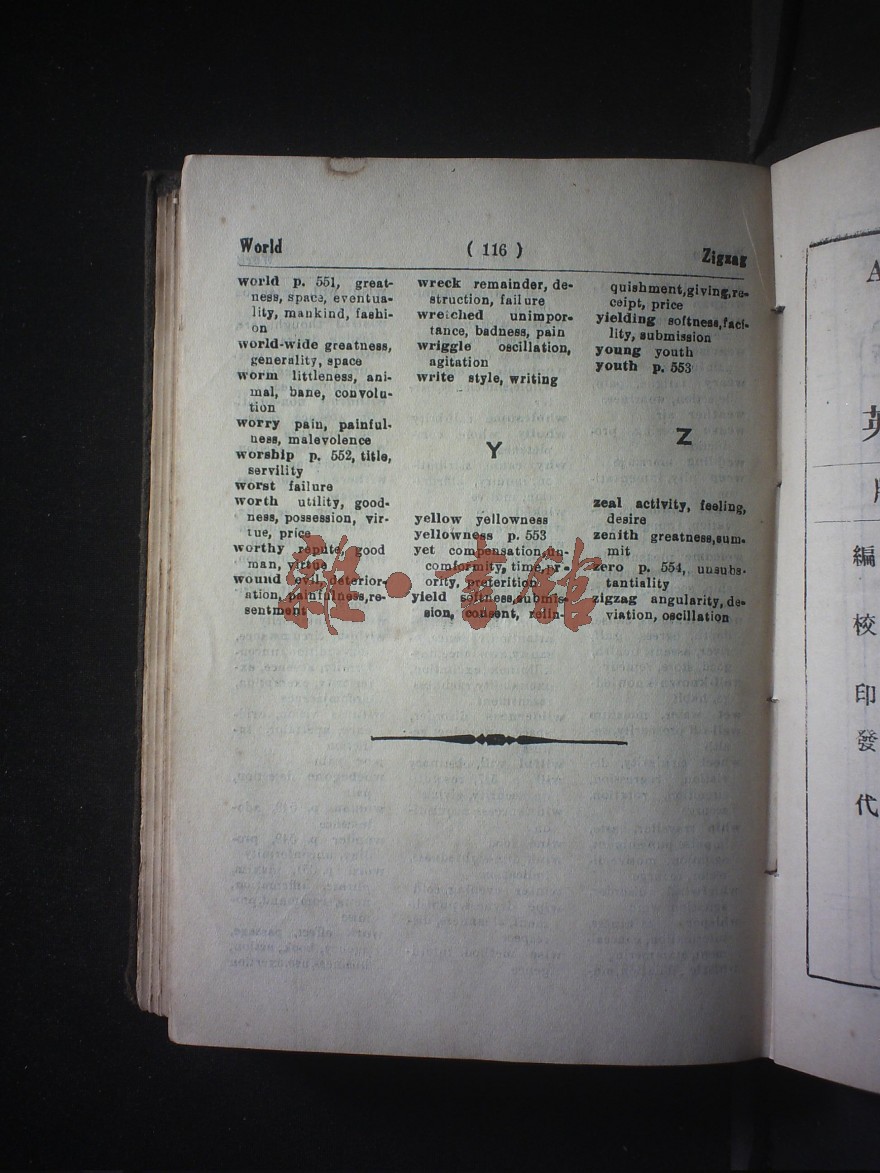 World
( 116 )
Zigzag
world p. 551, great-
ness, space, eventua-
lity, mankind, fashi-
on
world-wide greatness,
generality, space
worm littleness, ani-
mal, bane, convolu-
tion
worry pain, painful-
ness, malevolence
worship p. 552, title,
servility
worst failure
worth utility, good-
ness, possession, vir-
tue, price
worthy repute, good
man, virtue
wound evil, deterior-
ation, painfulness, re-
sentment
wreck remainder, de-
struction, failure
wretched unimpor-
tance, badness, pain
wriggle oscillation,
agitation
write style, writing
Y
yellow yellowness
yellowness p. 553
yet compensation, un-
comformity, time, pr-
ority, preterition
yield softness, submis-
sion, consent, relin-
quishment, giving, re-
ceipt, price
yielding softness, faci-
lity, submission
young youth
youth p. 553
Z
zeal activity, feeling,
desire
zenith greatness, sum-
mit
zero p. 554, unsubs-
tantiality
zigzag angularity, de-
viation, oscillation
雜·書館
A
英
編
校
印
發
代